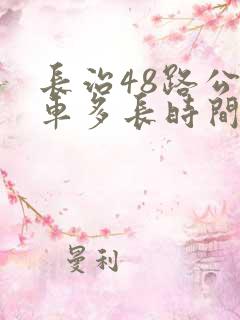 長治48路公
車多長時間
曼利